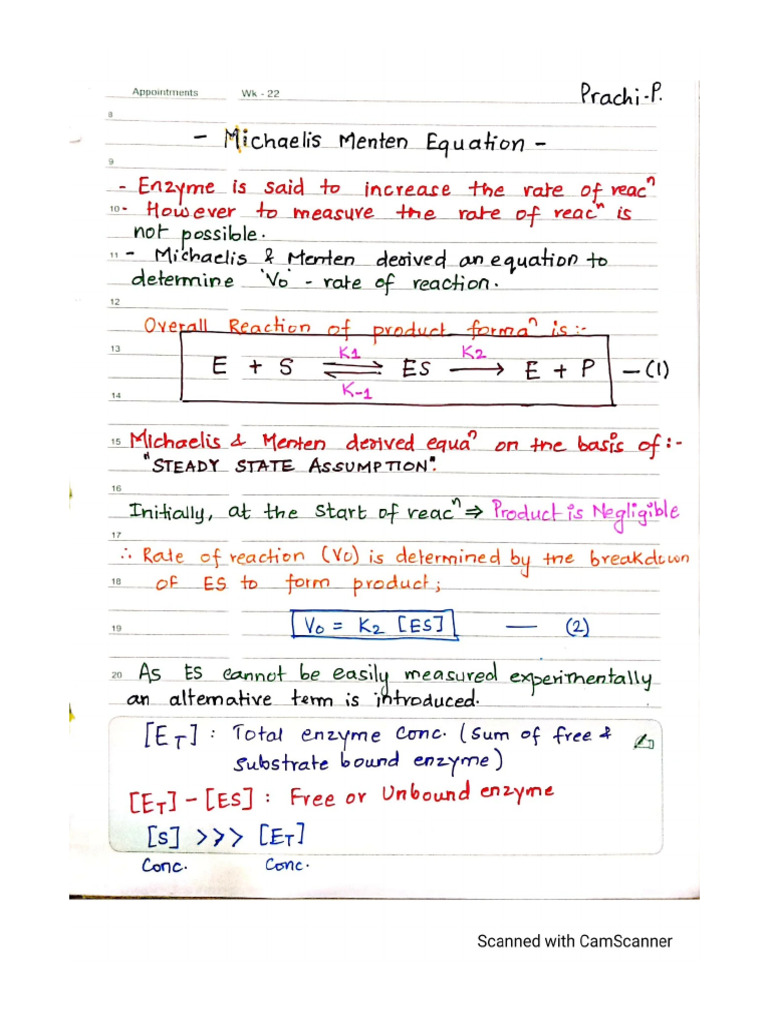 Appointments Wk - 22 Prachi-P.
8
- Michaelis Menten Equation -
9
- Enzyme is said to increase the rate of reacⁿ
10 - However to measure the rate of reacⁿ is
not possible.
11 - Michaelis & Menten derived an equation to
determine 'Vo' - rate of reaction.
12
Overall Reaction of product formaⁿ is:-
13
E + S ⇌ ES ⟶ E + P — (1)
K1 K2
K-1
14
15 Michaelis & Menten derived equaⁿ on the basis of:-
"STEADY STATE ASSUMPTION".
16
Initially, at the start of reacⁿ ⇒ Product is Negligible
17
∴ Rate of reaction (Vo) is determined by the breakdown
18 OF ES to form product;
19 Vo = K2 [ES] — (2)
20 As ES cannot be easily measured experimentally
an alternative term is introduced.
[ET] : Total enzyme conc. (sum of free &
substrate bound enzyme)
[ET] - [ES] : Free or Unbound enzyme
[S] >>> [ET]
Conc. Conc.
Scanned with CamScanner